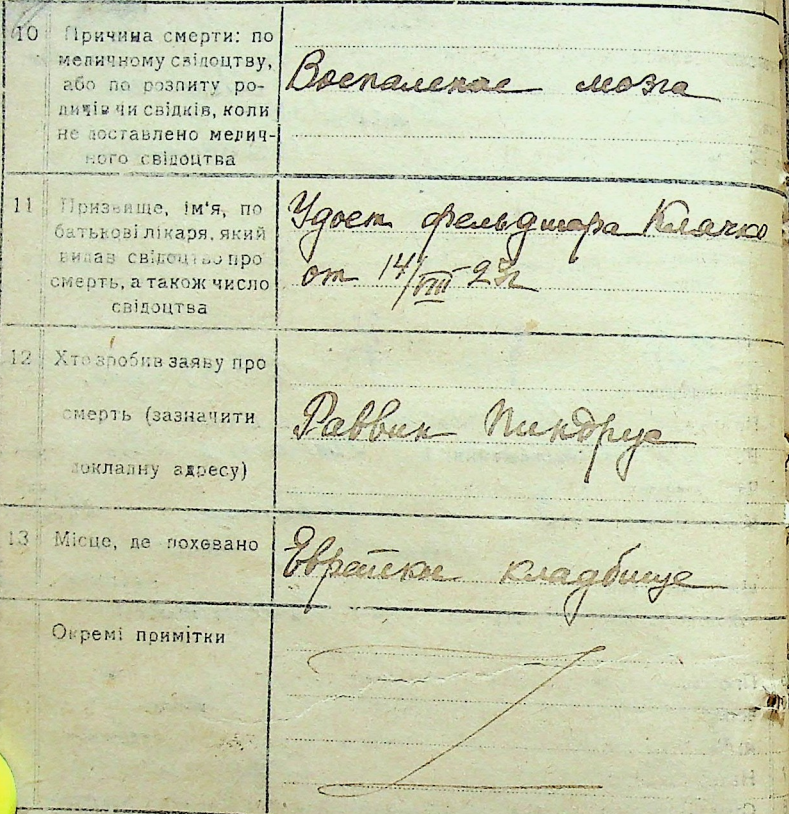 10 Причина смерти: по
меличному свідоцтву,
або по розпиту ро-
дичів чи свідків, коли
не доставлено мелич-
ного свідоцтва
Воспаление мозга
11 Призвище, ім'я, по
батькові лікаря, який
видав свідоцтво про
смерть, а також число
свідоцтва
Удост фельдшера Клячко
от 14/VIII 23г
12 Хто зробив заяву про
смерть (зазначити
докладну адресу)
Раввин Пиндрус
13 Місце, де поховано
Еврейское кладбище
Окремі примітки